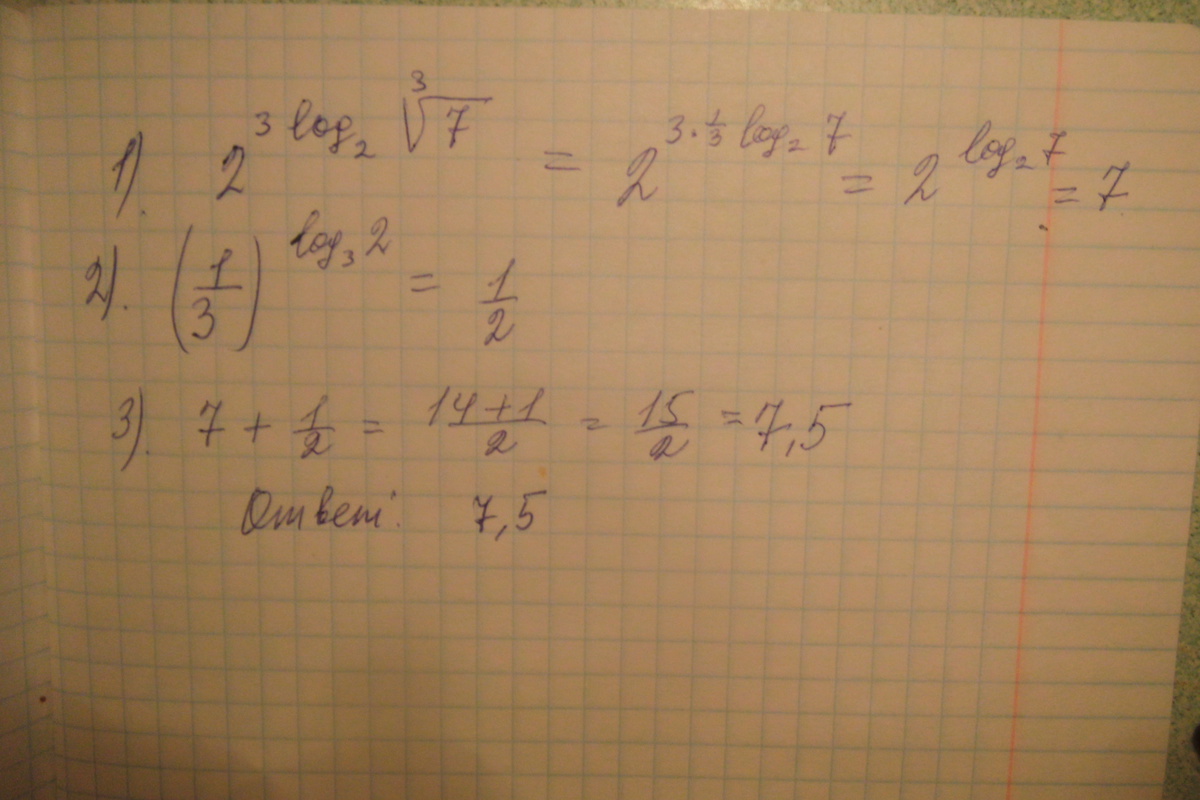 1). 2^{3 log₂ ∛7} = 2^{3·1/3 log₂ 7} = 2^{log₂ 7} = 7
2). (1/3)^{log₃ 2} = 1/2
3). 7 + 1/2 = (14+1)/2 = 15/2 = 7,5
Ответ: 7,5